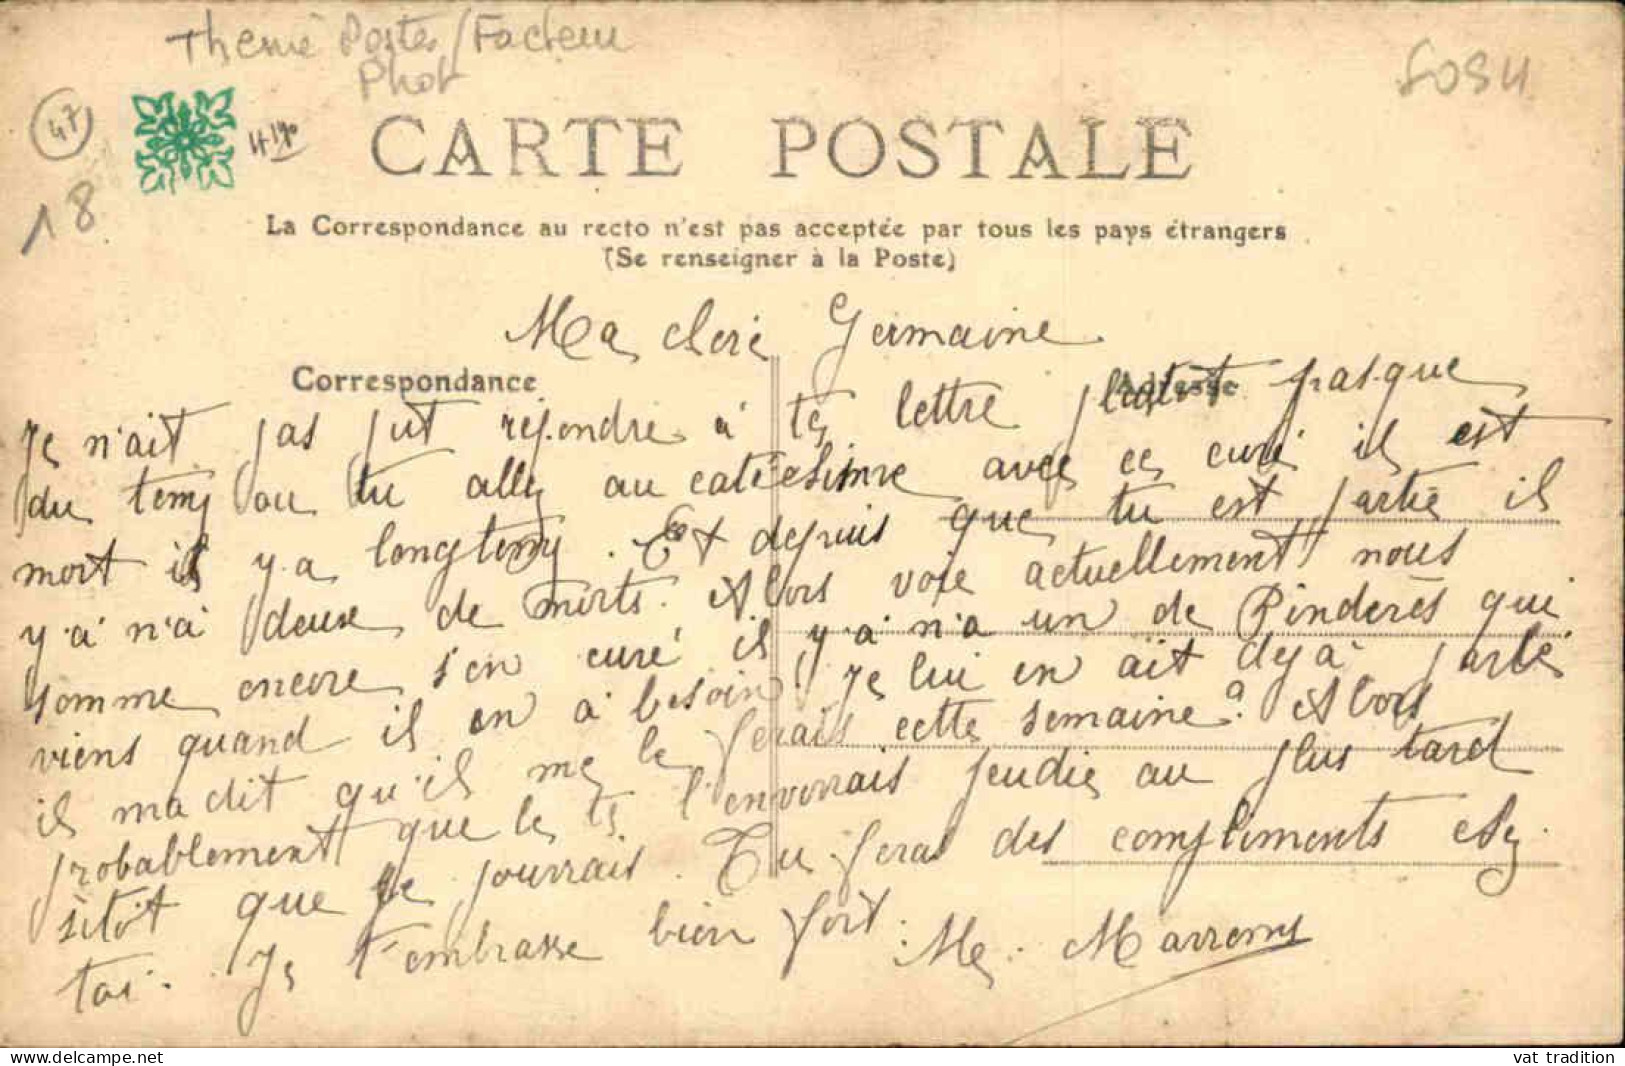 Theme Postes/Facteur
Phot
47
18
CARTE POSTALE
La Correspondance au recto n'est pas acceptée par tous les pays étrangers
(Se renseigner à la Poste)
Ma cheré Germaine
Correspondance
Adresse
Je n'ait pas put répondre à ta lettre plutot pasque
du temp ou tu alley au catéchisme avec ce curé il est
mort il y.a longtemp. Et depuis que tu est partie il
y.à n'à deux de morts. Alors voie actuellement nous
somme encore s'en curé il y.à n'a un de Pinderès qui
viens quand il en à besoin. Je lui en ait dejà parlé
il ma dit qu'il me le ferais cette semaine. Alors
probablement que le te l'enverrais jeudie au plus tard
sitôt que je pourrais. Tu feras des compliments chez
toi. Je t'embrasse bien fort.